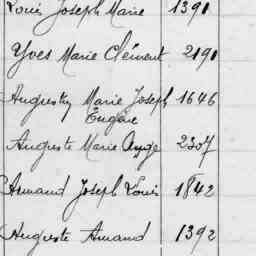 Louis Joseph Marie 1391
Yves Marie Clément 2190
Augustin Marie Joseph 1646
Eugène
Auguste Marie Ange 2307
Armand Joseph Louis 1842
Auguste Armand 1392